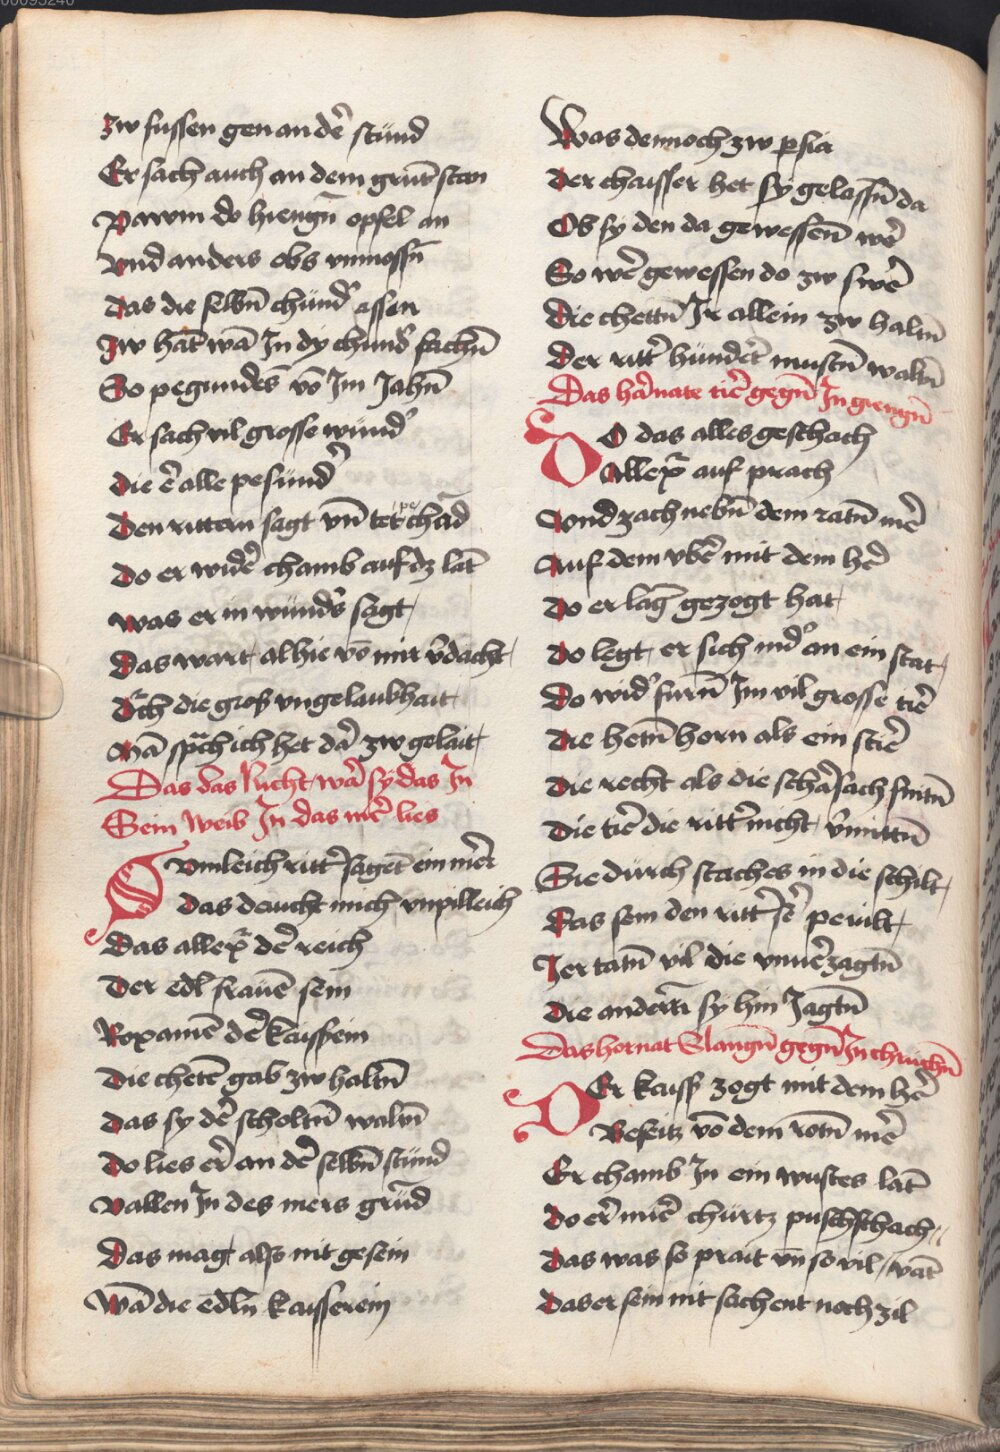 zw fussen gen an der̄ stünd
Er sach auch an dem grūt stan
Pawm do hiengn̄ opfel an
Vnd anders obs vnmossn̄
Das die selbn̄ chünd' assen
Zw hāt wā In dy chund' sachn̄
So pegundes vō Im Jahn̄
Er sach vil grosse wund'
Die er̄ alle pesünd'
Den rittern sagt vn̄ tet chād
Do er wider̄ chamb auf dz lāt
Was er in wünders sagt
Das wart alhie vō mir v̄dacht
Dͬch die gros vngelaubhait
Mā sprͣch ich het dar̄ zw gelait
Das das Nicht war̄ sy das In
Sein Weib In das mer̄ lies
Vmleich ritt' sagēt ein mēr
das deucht mich vnpilleich
Das allex̄ der̄ reich
Der edl frauen̄ sein
Roxamen̄ der̄ kaissein
Die cheten̄ gab zw haltn̄
Das sy der̄ scholtn̄ waltn̄
Do lies er̄ an der̄ selbn̄ stünd
Vallen In des mers grūd
Das mag also nit gesein
Wā die edln̄ kaisserein
Was dennoch zw persia
Der chaisser het sy gelossn̄ da
Ob sy den da gewessen̄ wer̄
So wer̄ gewessen do zw swer̄
Die chettn̄ Ir allein zw haltn̄
Der ritt' hündert̄ mustn̄ waltn̄
Das har̄nate tier̄ gegn̄ In giengn̄
DO das alles geschach
Allex̄ auf prach
Vnd zach nebn̄ dem rotn̄ mer̄
Auf dem vber̄ mit dem her̄
Do er lāg gezogt hat
Do legt er sich nid' an ein stat
Do wid' furn̄ Im vil grosse tier̄
Die hetn̄ horn als ein stier̄
Die recht als die schar̄sach snitn̄
Die tier̄ die ritt' nicht v̄mittn̄
Sie durch staches in die schilt
Das sein den ritt' ser̄ peuilt
Ier tatn̄ vil die vnuer̄zagtn̄
Die andern̄ sy hin Jagtn̄
Das hornat Slangn̄ gegn̄ In chruchn̄
DEr kaiss' zogt mit dem her̄
Beseitz vō dem rotn̄ mer̄
Er chamb In ein wustes lāt
Do er̄ nier̄ chürtz puschschach
Das was so prait vn̄ so vil vāt
Das er sein nit sach ent noch zil